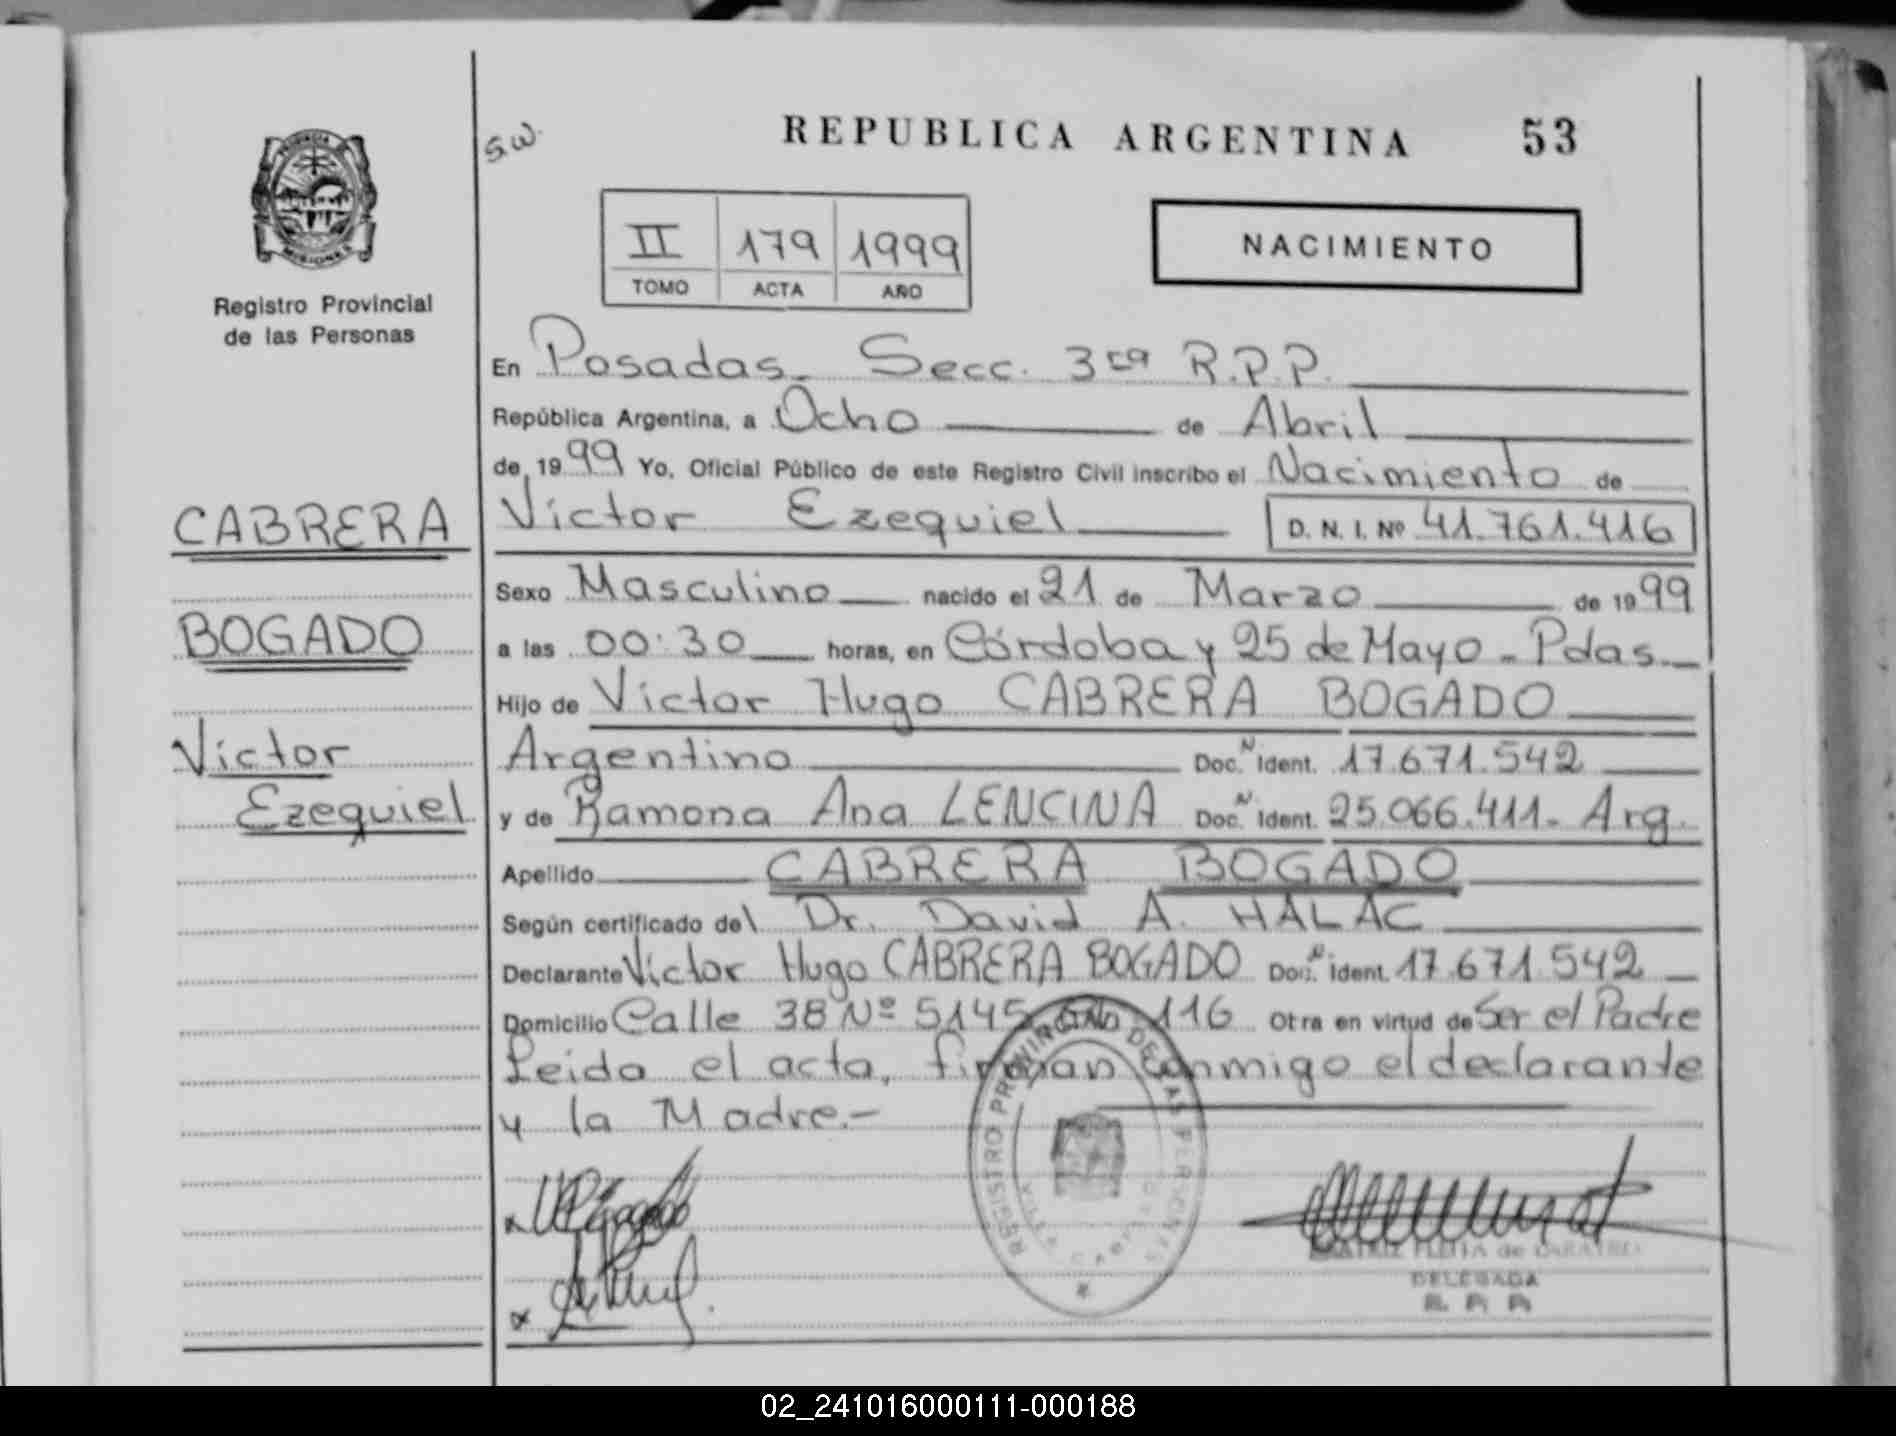 REPUBLICA ARGENTINA 53
S.W.
PROVINCIA DE MISIONES
Registro Provincial
de las Personas
II 179 1999
TOMO ACTA AÑO
NACIMIENTO
En Posadas. Secc. 3ra R.P.P.
República Argentina, a Ocho de Abril
de 1999 Yo, Oficial Público de este Registro Civil inscribo el Nacimiento de
CABRERA
Victor Ezequiel D. N. I. Nº 41.761.416
Sexo Masculino nacido el 21 de Marzo de 1999
BOGADO
a las 00:30 horas, en Córdoba y 25 de Mayo - Pdas.
Hijo de Victor Hugo CABRERA BOGADO
Victor
Argentino Doc. N Ident. 17.671.542
Ezequiel
y de Ramona Ana LENCINA Doc. N Ident. 25.066.411. Arg.
Apellido CABRERA BOGADO
Según certificado del Dr. David A. HALAC
Declarante Victor Hugo CABRERA BOGADO Doc. N Ident. 17.671.542
Domicilio Calle 38 Nº 5145 116 Otra en virtud de Ser el Padre
Leida el acta, firman conmigo el declarante
y la Madre.-
REGISTRO PROVINCIAL DE LAS PERSONAS
de
DELEGADA
R. P. P.
02_241016000111-000188